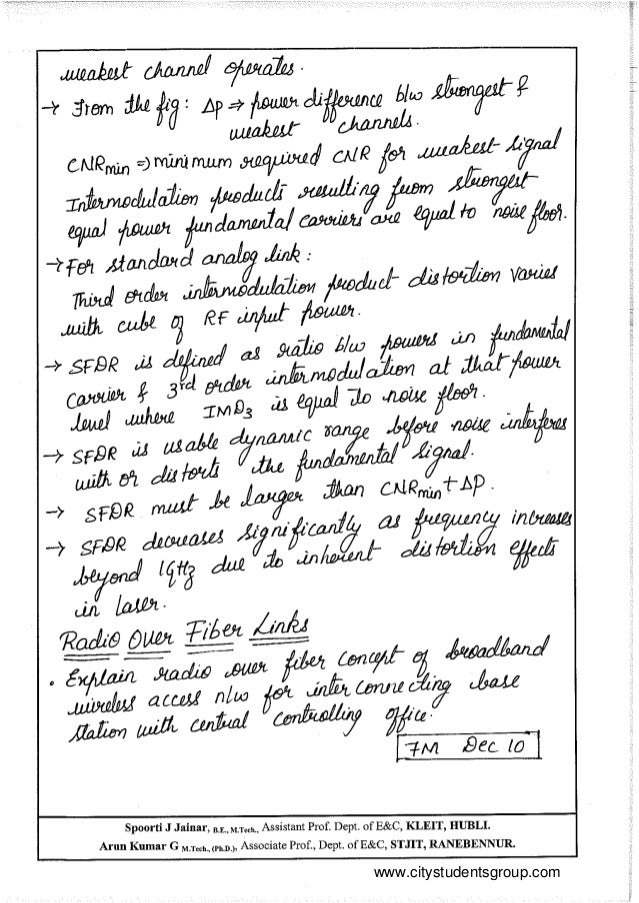 weakest channel operates.
→ From the fig: ΔP ⇒ power difference b/w strongest &
weakest channels.
CNRmin ⇒ minimum required CNR for weakest signal
Intermodulation products resulting from strongest
equal power fundamental carriers are equal to noise floor.
→ For standard analog link:
Third order intermodulation product distortion varies
with cube of RF input power.
→ SFDR is defined as ratio b/w powers in fundamental
carrier & 3rd order intermodulation at that power
level where IMD3 is equal to noise floor.
→ SFDR is usable dynamic range before noise interferes
with or distorts the fundamental signal.
→ SFDR must be larger than CNRmin + ΔP.
→ SFDR decreases significantly as frequency increases
beyond 1GHz due to inherent distortion effects
in laser.
Radio Over Fiber Links
• Explain radio over fiber concept of broadband
wireless access n/w for interconnecting base
station with central controlling office.
7M Dec 10
Spoorti J Jainar, B.E., M.Tech., Assistant Prof. Dept. of E&C, KLEIT, HUBLI.
Arun Kumar G M.Tech., (Ph.D.), Associate Prof., Dept. of E&C, STJIT, RANEBENNUR.
www.citystudentsgroup.com